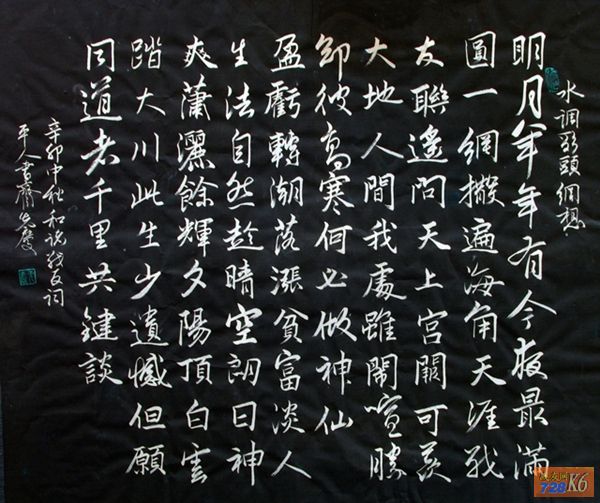 水调歌頭 網想
明月年年有今夜最滿
圓一網撒遍海角天涯戰
友聯遙問天上宮闕可羨
大地人間我處雖鬧喧勝
卻彼高寒何必做神仙
盈虧轉潮落漲貧富淡人
生法自然趁晴空朗日神
爽蕭灑餘輝夕陽頂白雲
踏大川此生少遺憾但願
同道老千里共鍵談
辛卯中秋和战友词
平人書齋
728 K6